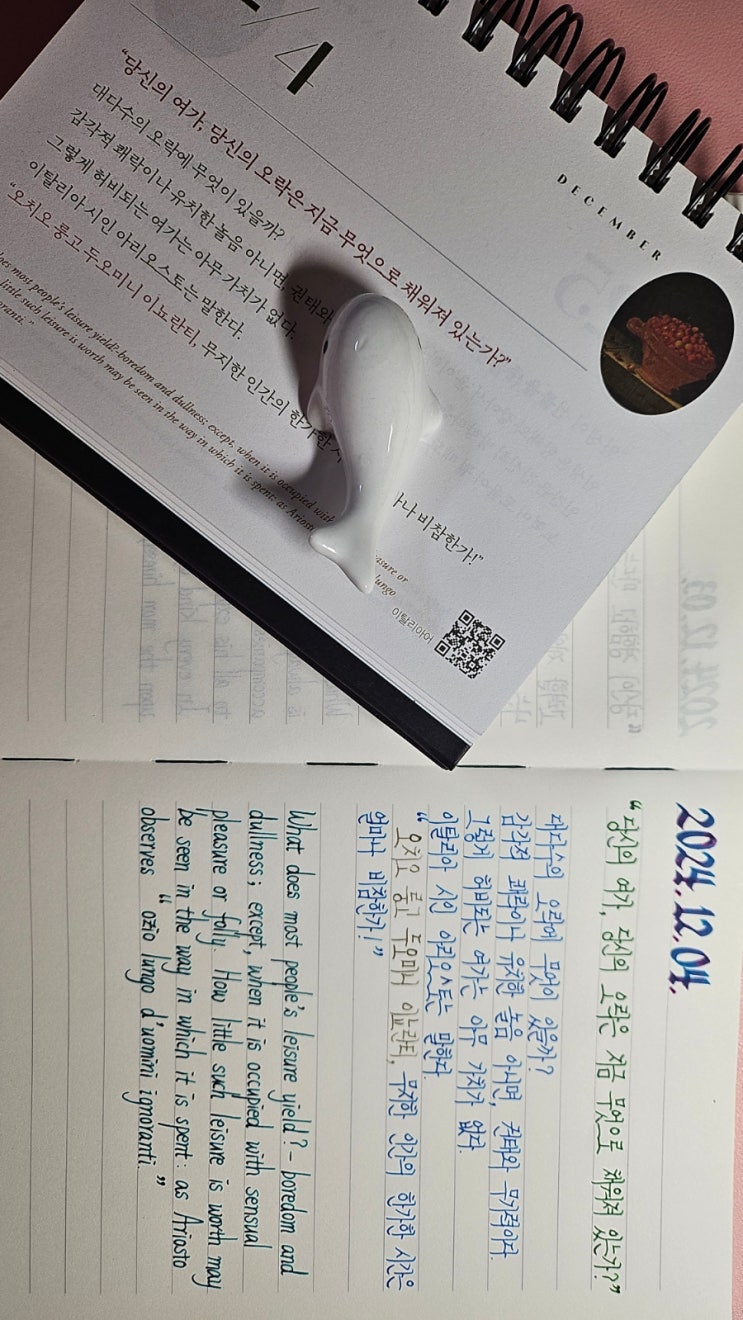 /4
DECEMBER
“당신의 여가, 당신의 오락은 지금 무엇으로 채워져 있는가?”
대다수의 오락에 무엇이 있을까?
감각적 쾌락이나 유치한 놀음 아니면, 권태와
그렇게 허비되는 여가는 아무 가치가 없다.
이탈리아 시인 아리오스토는 말한다.
“오치오 룽고 두오미니 이뇨란티, 무지한 인간의 한가한 나 비참한가!”
oes most people's leisure yield?-boredom and dullness; except, when it is occupied with asure or
little such leisure is worth may be seen in the way in which it is spent: as Ariosto lungo
oranti.”
2024. 12. 04.
“당신의 여가, 당신의 오락은 지금 무엇으로 채워져 있는가?”
대다수의 오락에 무엇이 있을까?
감각적 쾌락이나 유치한 놀음 아니면, 권태와 무기력이다.
그렇게 허비되는 여가는 아무 가치가 없다.
이탈리아 시인 아리오스토는 말한다.
“오치오 룽고 두오미니 이뇨란티, 무지한 인간의 한가한 시간은
얼마나 비참한가!”
What does most people's leisure yield? - boredom and
dullness; except, when it is occupied with sensual
pleasure or folly. How little such leisure is worth may
be seen in the way in which it is spent: as Ariosto
observes “ozio lungo d'uomini ignoranti.”